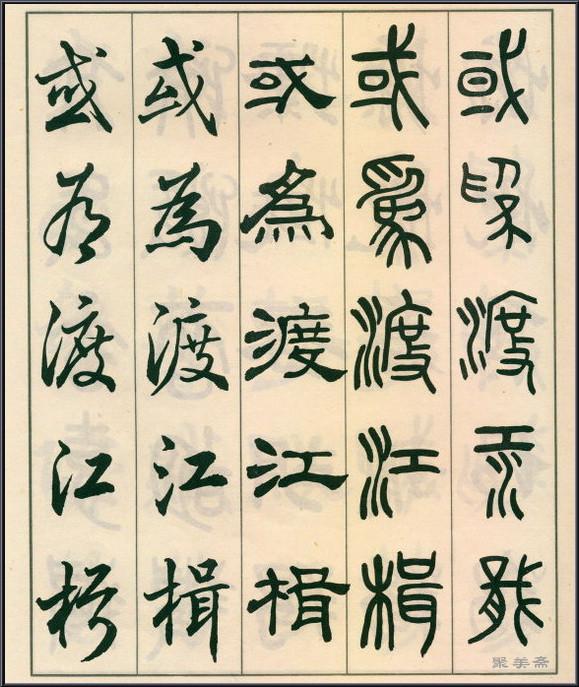 或為渡江楫
或為渡江楫
或為渡江楫
或為渡江楫
或為渡江楫
聚美斋